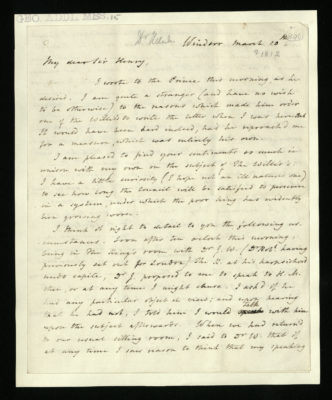 GEO. ADDL. MSS. 15
Windsor March 10th
? 1812
My dear Sir Henry,
I wrote to the Prince this morning as he
desired. I am quite a stranger (and have no wish
to be otherwise) to the reasons which made him order
one of the Willis's to write the letter when I was here. But
it would have been hard indeed, had he reproached me
for a measure, which was entirely his own.
I am pleased to find your sentiments so much in
unison with my own on the subject of The Willis's.
I have a little curiosity (I hope not an ill natured one)
to see how long the Council will be satisfied to persevere
in a system, under which the poor King has evidently
been growing worse.
I think it right to detail to you the following
circumstance. Soon after ten o'clock this morning,
being in the King's room with Dr J. W. (Dr Robt. having
previously set out for London) the K. at his harpsichord
nudo capite, Dr J. proposed to me to speak to H. M.
then, or at any time I might chuse. I ask'd if he
had any particular object in view; and upon hearing
that he had not, I told him I would talk with him
upon the subject afterwards. When we had returned
to our usual sitting room, I said to Dr W. that if
at any time I saw reason to think that my speaking